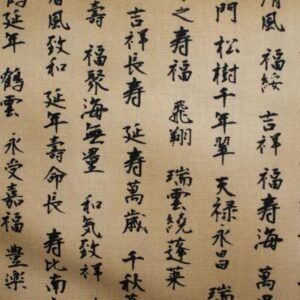 清風 福綏 吉祥 福寿海 萬
門 松樹千年翠 天禄永昌 瑞
之寿福 飛翔 瑞雲繞蓬莱
吉祥長寿 延寿萬歳 千秋
壽 福聚海無量 和気致祥
風致和 延年壽命長 寿比南
延年 鶴雲 永受嘉福 豊楽